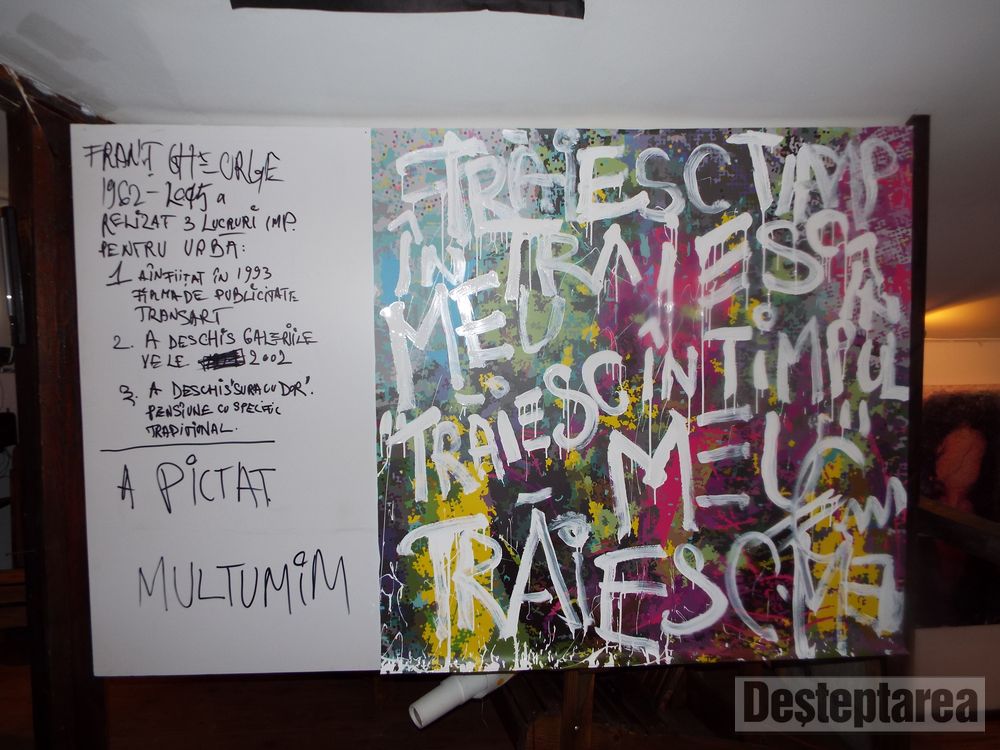 FRANȚ GHEORGE
1962-2045 a
RELIZAT 3 LUCRURI IMP.
PENTRU URBA:
1 AÎNFIITAT ÎN 1993
FIRMA DE PUBLICITATE
TRANSART
2. A DESCHIS GALERIILE
VELE 2002
3. A DESCHIS "SURA CU DOR".
PENSIUNE CU SPECIFIC
TRADITIONAL.
A PICTAT
MULTUMIM
TRĂIESC TIMP
ÎN TRAIESC
MEU
TRAIESC ÎN TIMPUL
MEU
TRĂIESC
Deșteptarea